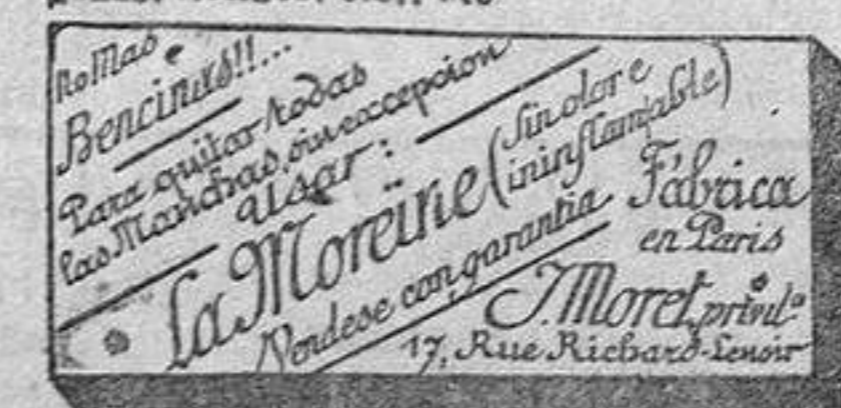 No Mas
Bencinas!!...
Para quitar todas
las Manchas, sin excepcion
Usar:
La Moreïne (Sin olor e
ininflamable)
Vendese con garantia
Fábrica
en Paris
J. Moret, privilº
17, Rue Richard-Lenoir